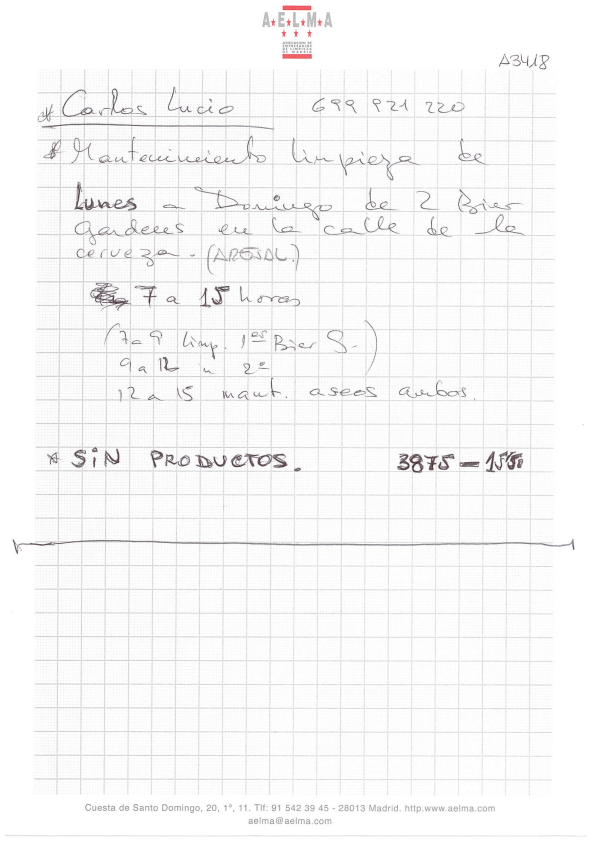 A★E★L★M★A
ASOCIACION DE
EMPRESARIOS
DE LIMPIEZA
DE MADRID
A3418
* Carlos Lucio 699 921 220
* Mantenimiento limpieza de
Lunes a Domingo de 2 Bier
Gardens en la calle de la
cerveza. (ARENAL.)
7 a 15 horas
(7a9 limp. 1er Bier G.)
9 a 12 " 2º
12 a 15 mant. aseos ambos.
* SIN PRODUCTOS. 3875 - 155
Cuesta de Santo Domingo, 20, 1º, 11. Tlf: 91 542 39 45 - 28013 Madrid. http.www.aelma.com
aelma@aelma.com